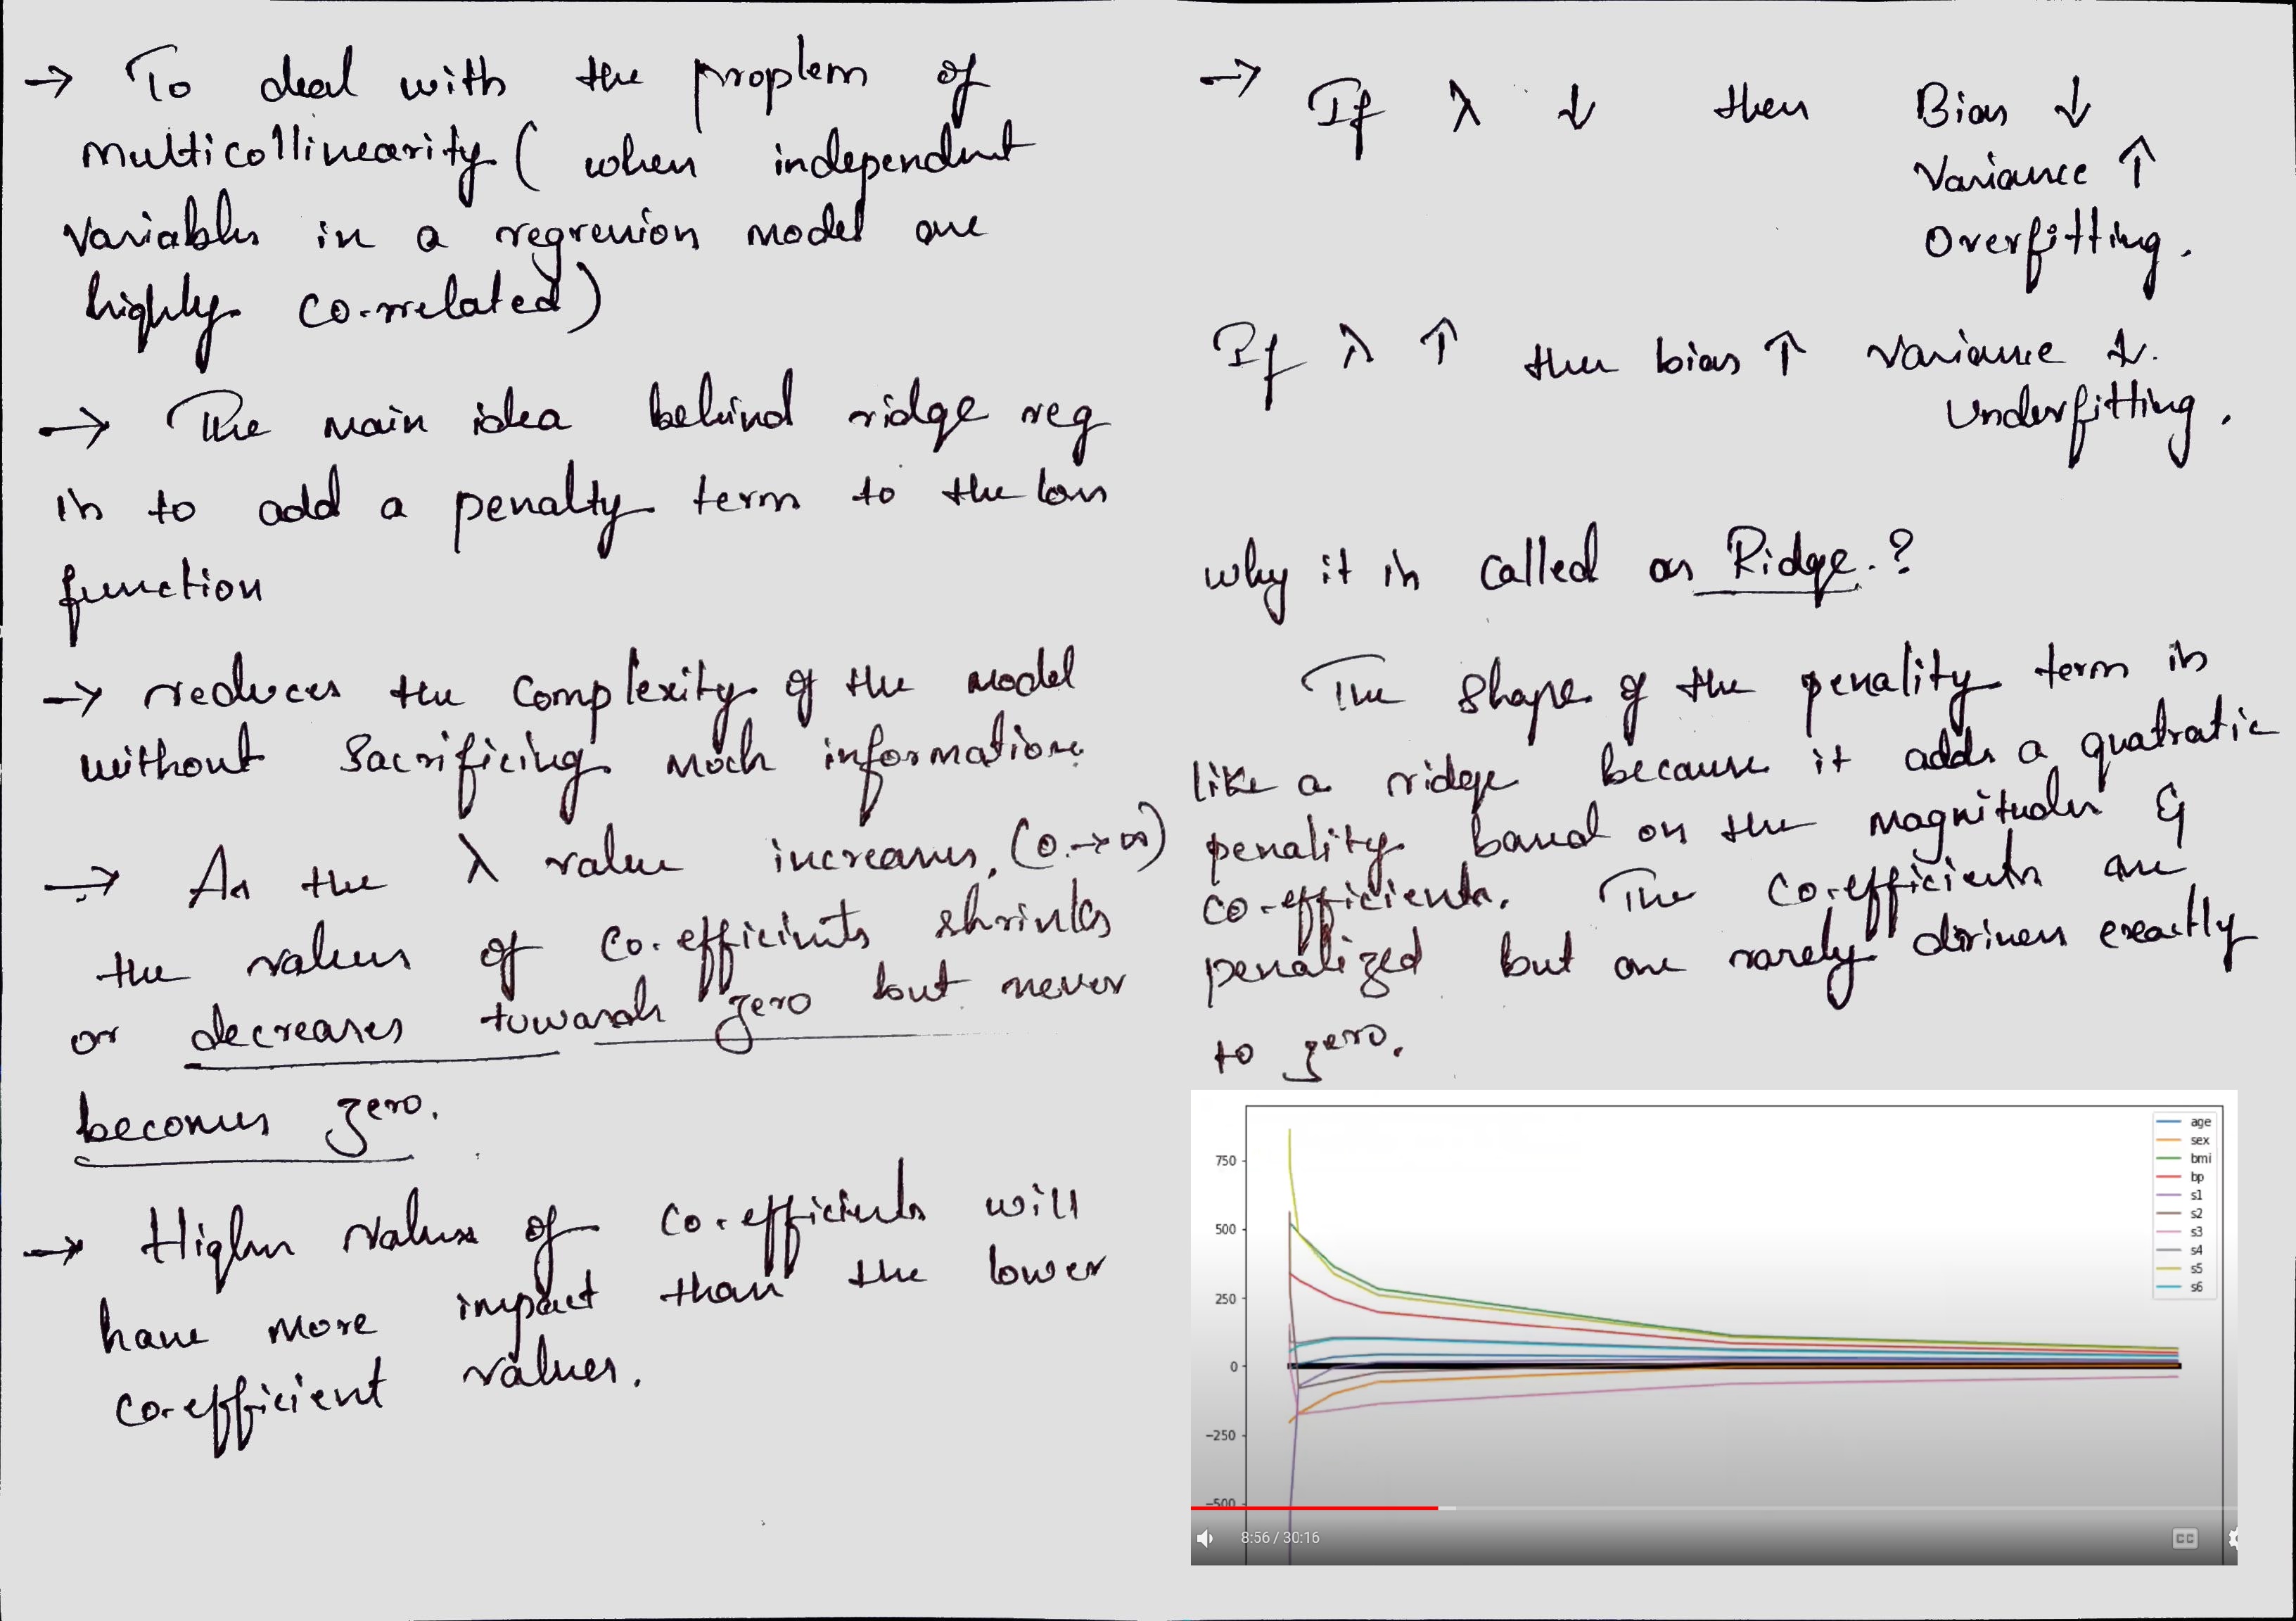 → To deal with the proplem of
multicollinearity (when independent
variables in a regression model are
highly co-rrelated)
→ The main idea behind ridge reg
is to add a penalty term to the loss
function
→ reduces the complexity of the model
without sacrificing much information.
→ As the λ value increases, (0 → ∞)
the values of co-efficients shrinks
or decreases towards zero but never
becomes zero.
→ Higher values of co-efficients will
have more impact than the lower
co-efficient values.
→ If λ ↓ then Bias ↓
Variance ↑
Overfitting.
If λ ↑ then bias ↑ variance ↓.
Underfitting.
why it is called as Ridge.?
The shape of the penality term is
like a ridge because it adds a quatratic
penality based on the magnitudes of
co-efficients. The co-efficients are
penalized but are rarely driven exactly
to zero.
age
sex
bmi
bp
s1
s2
s3
s4
s5
s6
750
500
250
0
-250
-500
8:56 / 30:16
CC